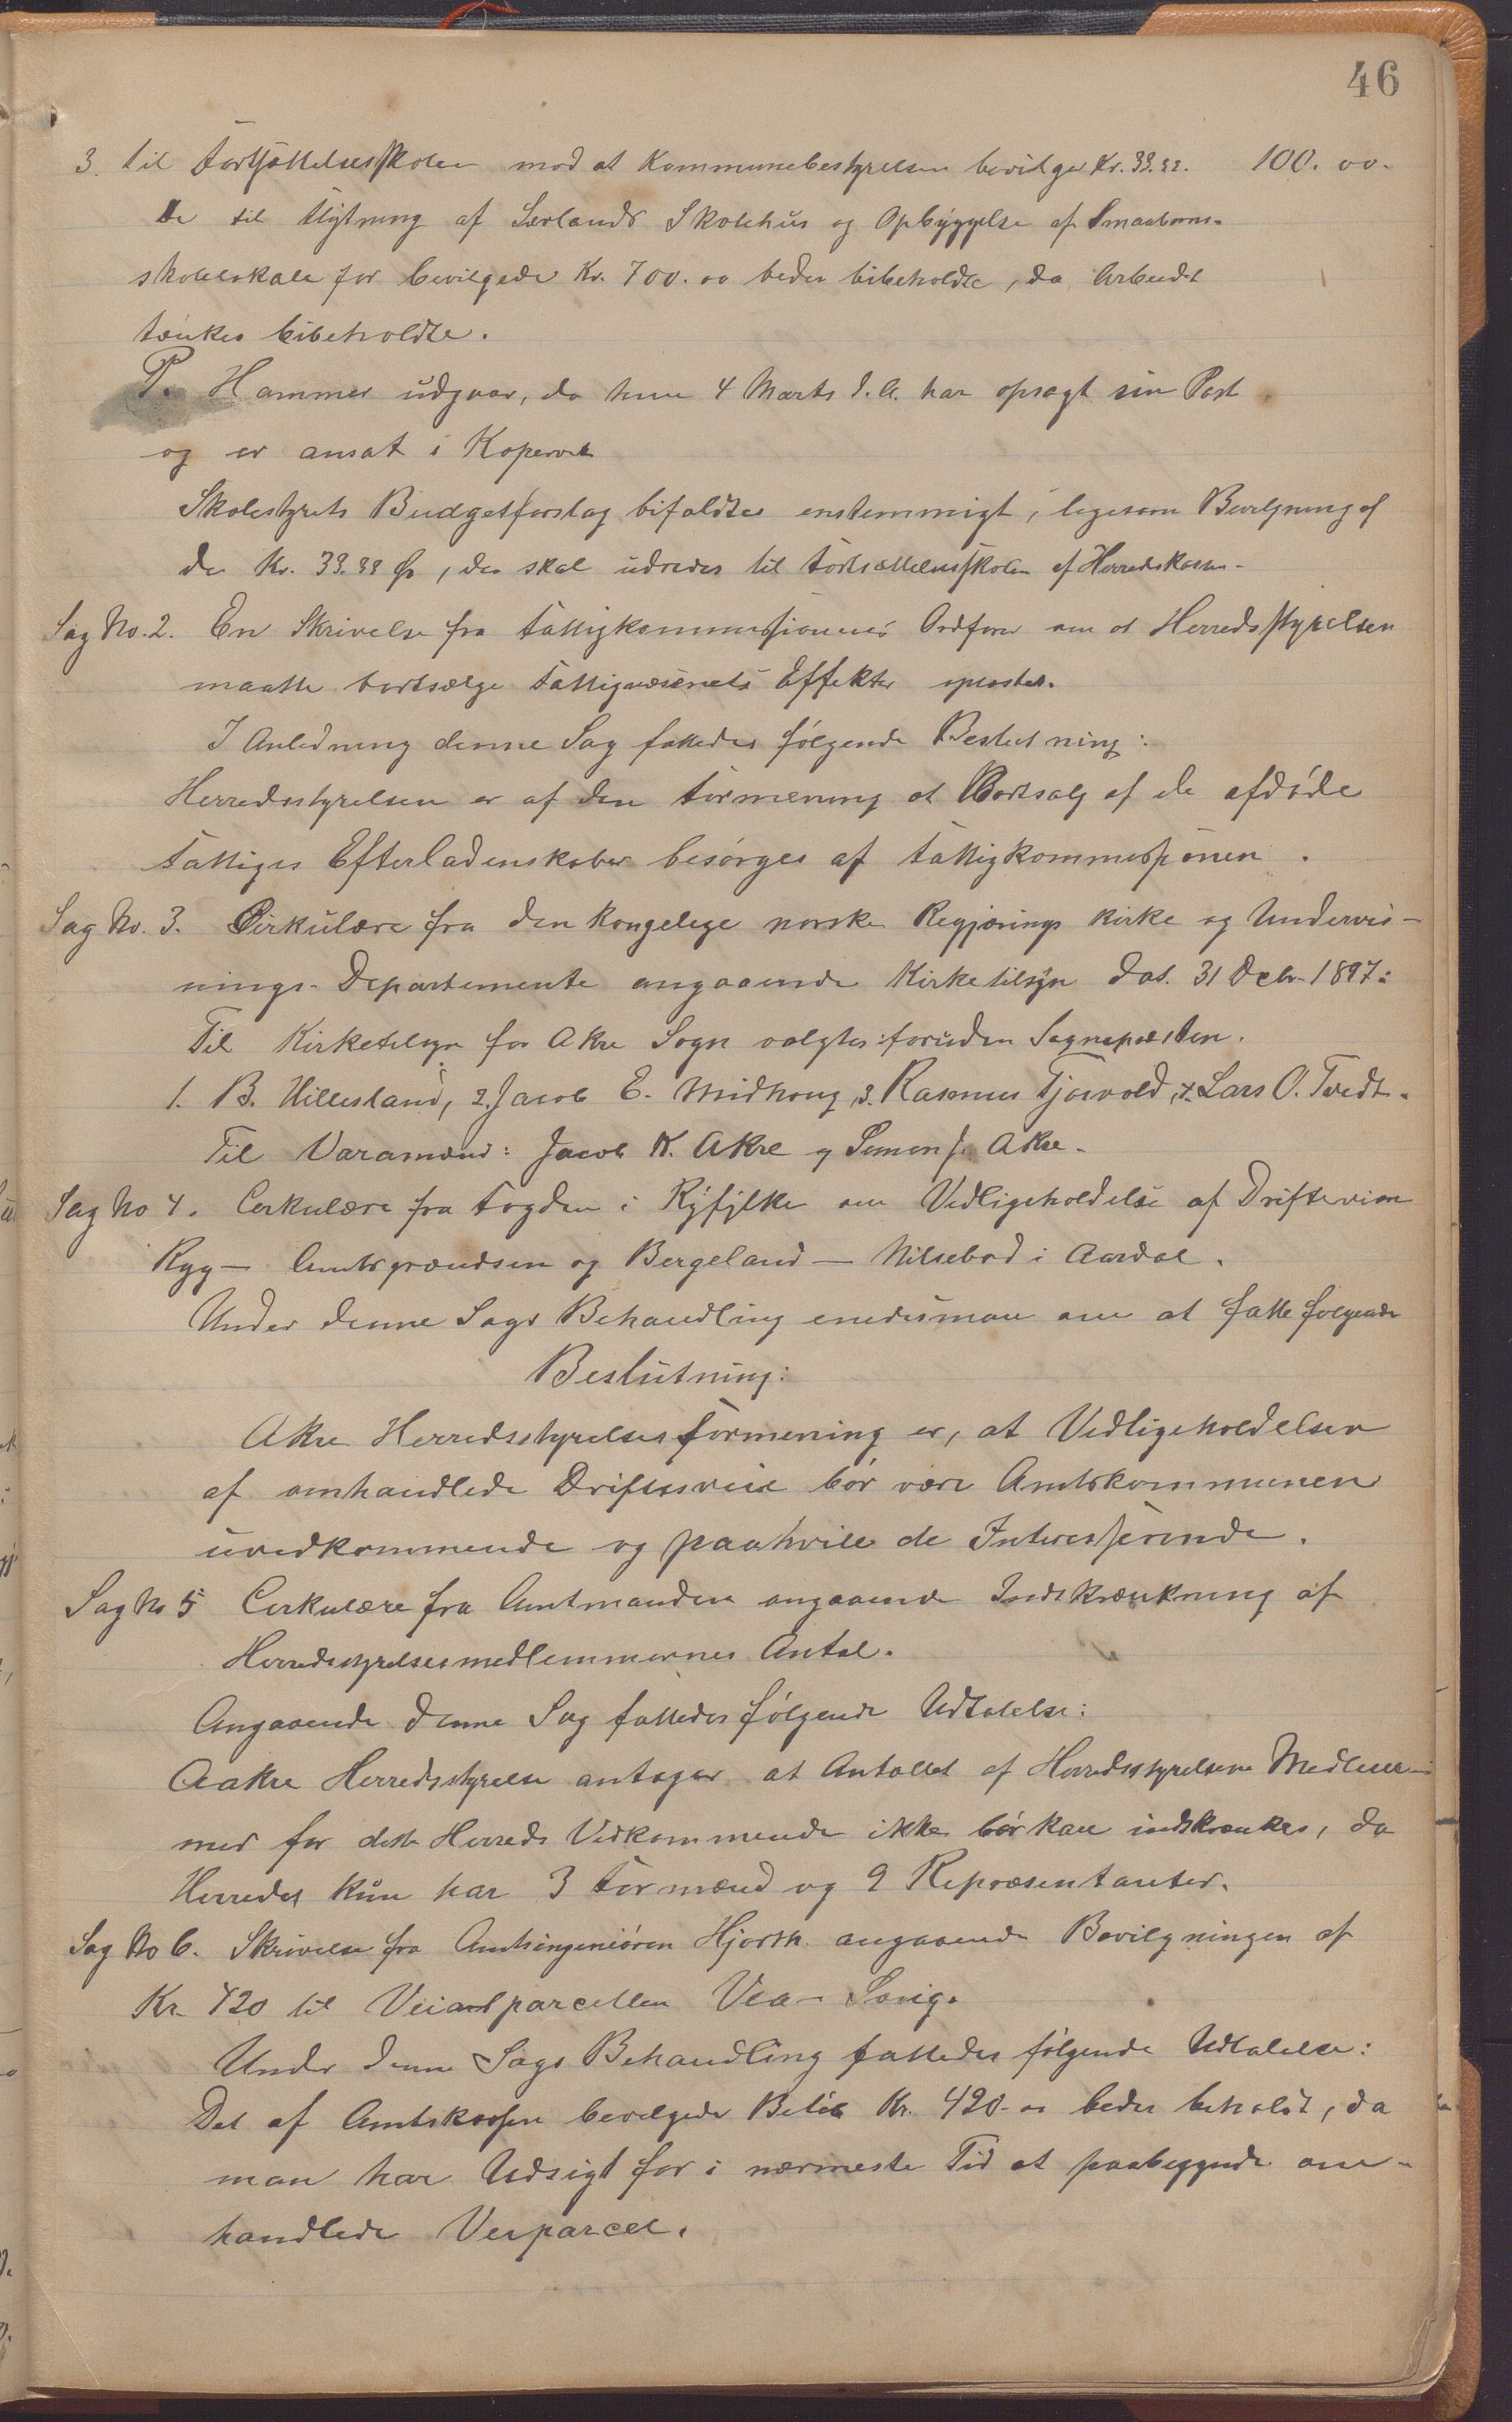 46
3. til Fortsættelsesskolen mod at Kommunebestyrelsen bevilger Kr. 33.33. 100.00.
De til Flytning af Sørlands Skolehus og Opbyggelse af Smaabørns-
skolelokale før bevilgede Kr. 700.00 bedes bibeholdte, da Arbeidet
tænkes bibeholdte.
P. Hammer udgaar, da hun 4 Marts d.A. har opsagt sin Post
og er ansat i Kopervik
Skolestyrets Budgetforslag bifaldtes enstemmigt, ligesom Bevilgning af
de Kr. 33.33 Ør, der skal udredes til Fortsættelsesskolen af Herredskassen-
Sag No. 2. En Skrivelse fra Fattigkommissionens Ordfører om at Herredsstyrelsen
maatte bortsælge Fattigvæsenets Effekter oplæstes.
I Anledning denne Sag fattedes følgende Beslutning:
Herredsstyrelsen er af den Formening at Bortsalg af de afdøde
Fattiges Efterladenskaber besørges af Fattigkommissionen.
Sag No. 3. Cirkulære fra den kongelige norske Regjerings Kirke og Undervis-
nings-Departemente angaaende Kirketilsyn dat. 31 Debr 1897:
Til Kirketilsyn for Akre Sogn valgtes foruden Sognepræsten.
1. B. Hillesland, 2. Jacob E. Midhoug, 3. Rasmus Tjosvold, 4. Lars O. Tvedt.
Til Varamænd: Jacob K. Akre og Simon J. Akre.
Sag No 4. Cirkulære fra Fogden i Ryfylke om Vedligeholdelse af Drifteveien
Ryg - Amtsgrændsen og Bergeland - Nilsebod i Aardal.
Under denne Sags Behandling enedes man om at fatte følgende
Beslutning:
Akre Herredsstyrelses Formening er, at Vedligeholdelsen
af omhandlede Driftesveie bør være Amtskommunen
uvedkommende og paahvile de Interesserende.
Sag No 5 Cirkulære fra Amtmanden angaaende Indskrænkning af
Herredsstyrelsesmedlemmernes Antal.
Angaaende denne Sag fattedes følgende Udtalelse:
Aakre Herredsstyrelse antager at Antallet af Herredsstyrelsens Medlem-
mer for dette Herreds Vedkommende ikke bør kan indskrænkes, da
Herredet kun har 3 Formænd og 9 Repræsentanter.
Sag No 6. Skrivelse fra Amtsingeniøren Hjorth angaaende Bevilgningen af
Kr 420 til Veiparcellen Vea - Sævig.
Under denne Sags Behandling fattedes følgende Udtalelse:
Det af Amtskassen bevilgede Beløb Kr. 420.00 bedes beholdt, da
man har Udsigt for i nærmeste Tid at paabegynde om-
handlede Veiparcel.